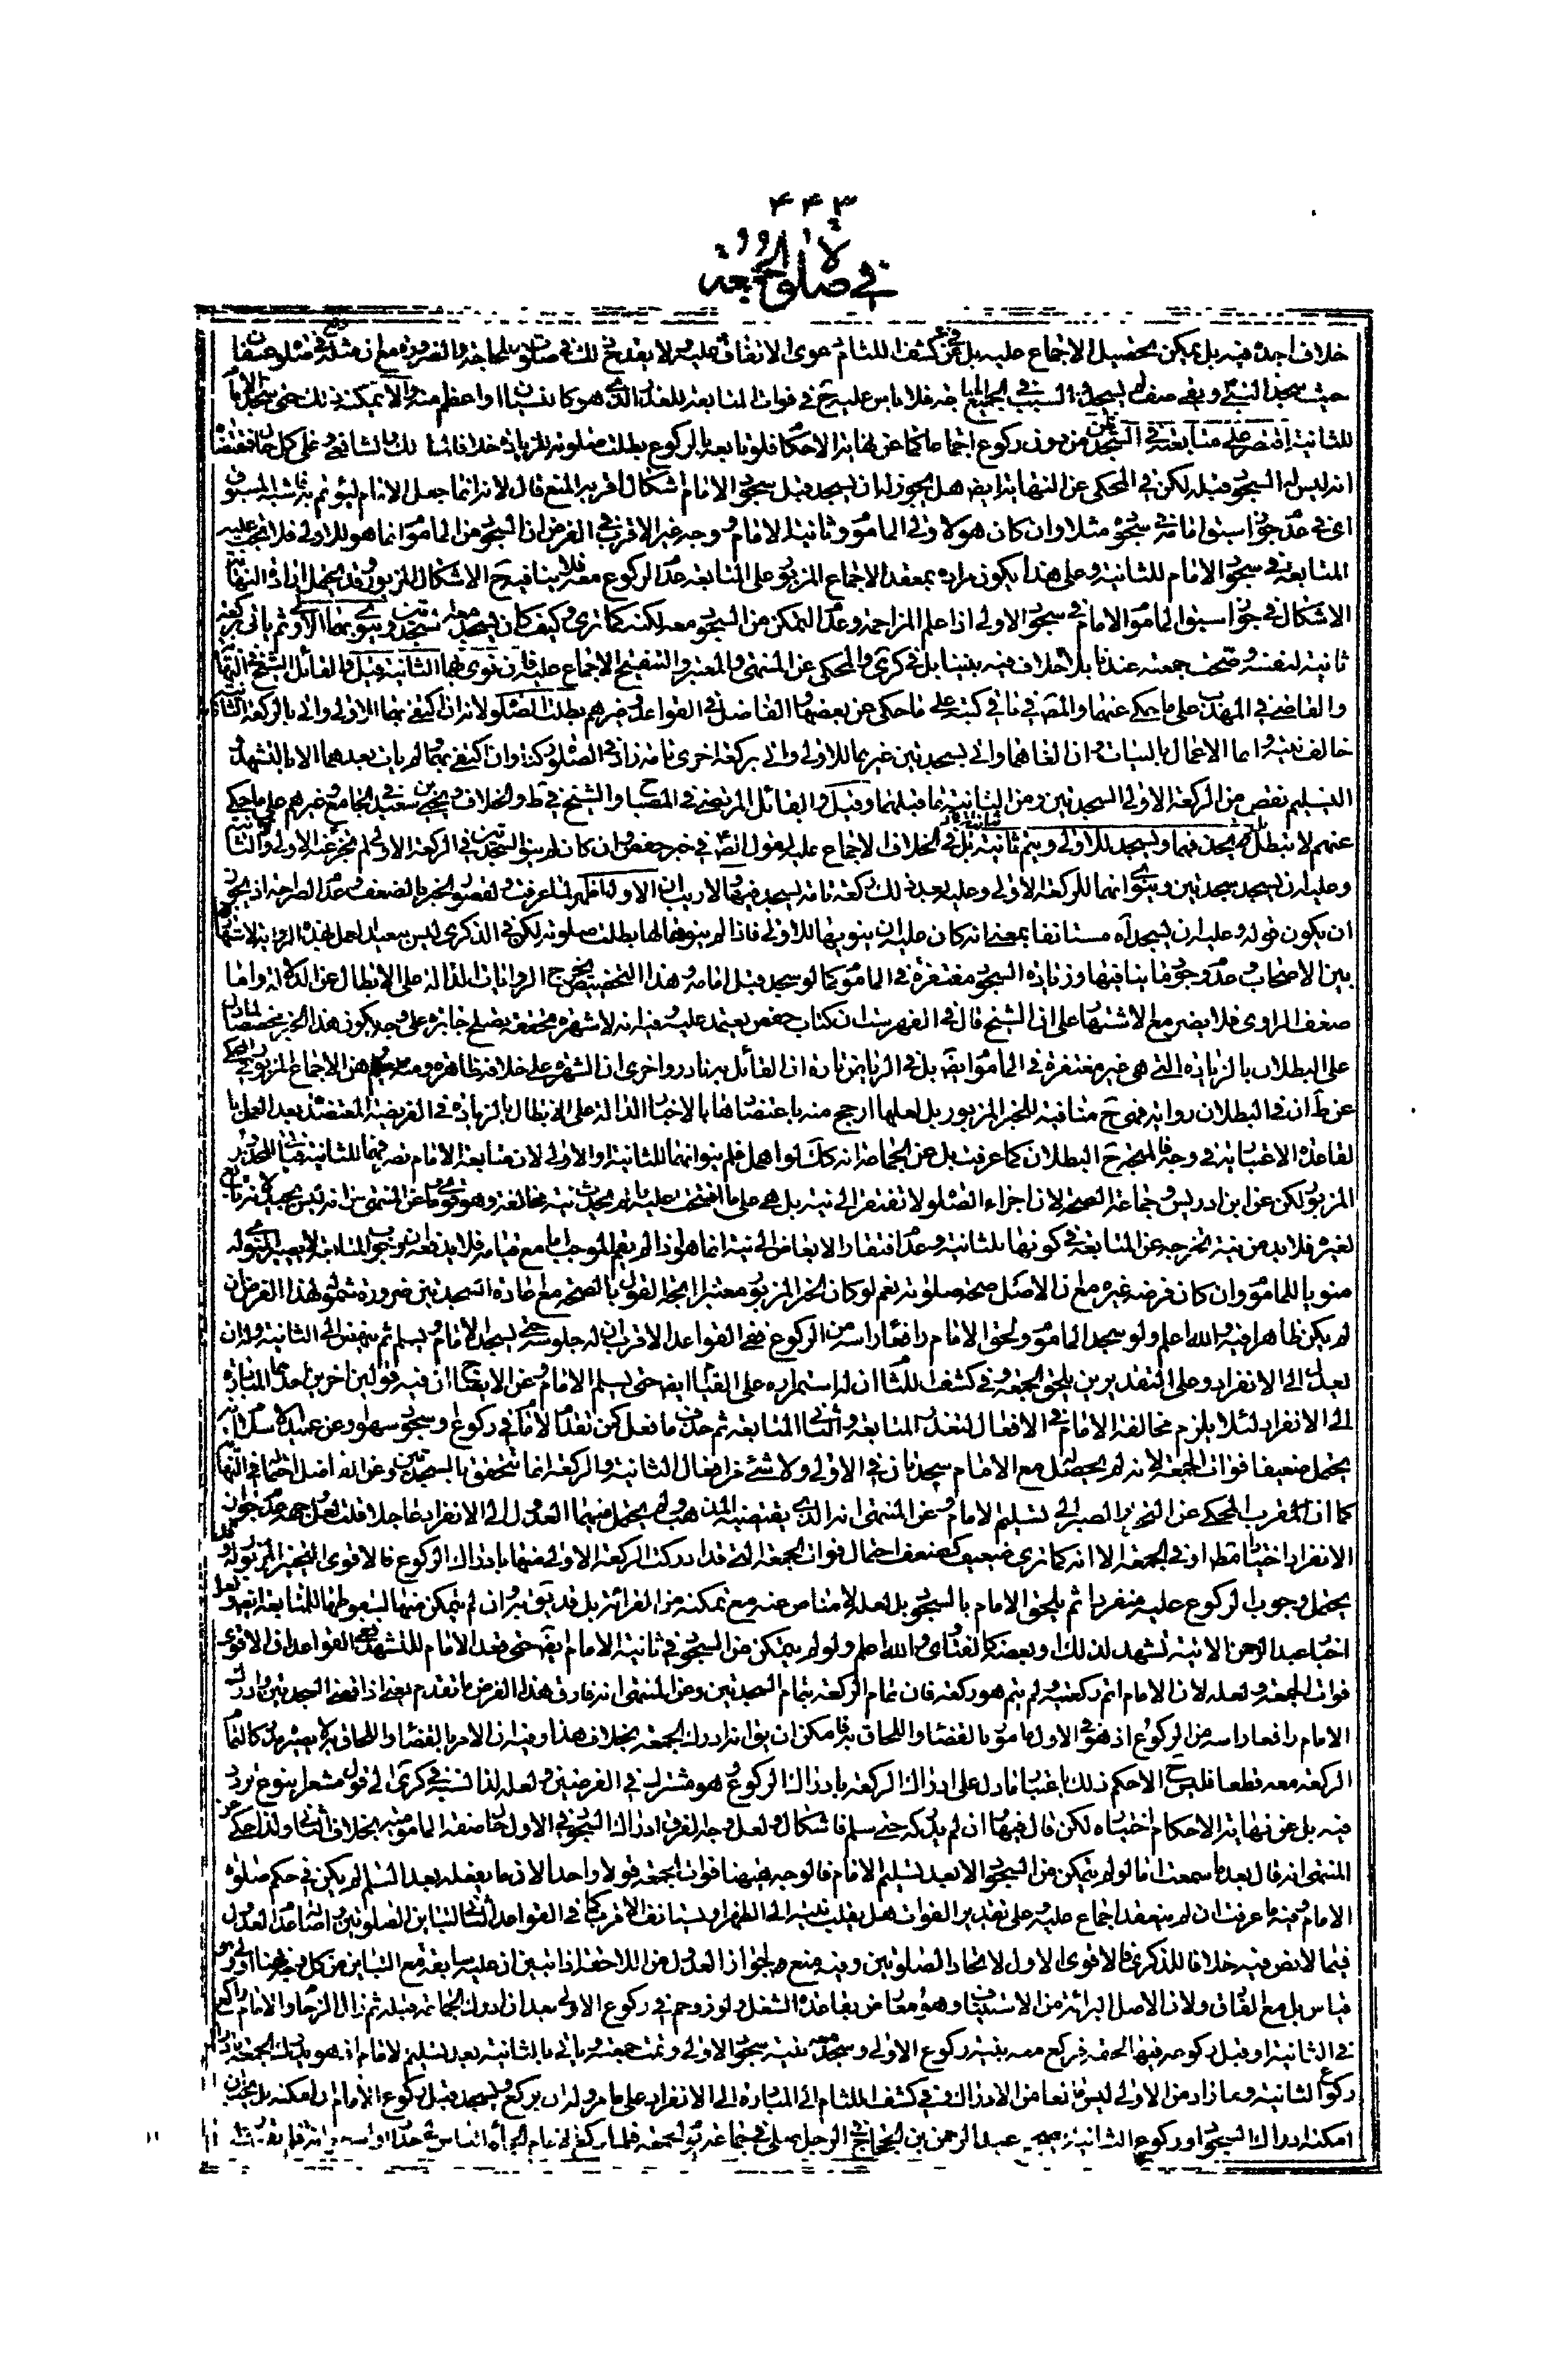 ۴۴۳
في صلوة الجمعة
خلاف اجده فيه بل يمكن تحصيل الاجماع عليه بل عن كشف اللثام دعوى الاتفاق عليه ولا يقدح ذلك في صلوته للحاجة والضرورة مع ان مثله في صلوة عسفان
حيث سجد النبي وبقى صف لم يسجد والسبب في الجميع فلا باس عليه ح في فوات المتابعة للعذر الذي هو كالنسيان او اعظم منه والا يمكنه ذلك حتى سجد الامام
للثانية اقتصر على متابعته في السجدتين من دون ركوع اجماعا كما عن نهاية الاحكام فلو تابعه بالركوع بطلت صلوته للزيادة خلافا لمالك والشافعي وعلى كل حال
انه ليس له السجود قبله لكن في المحكي عن النهاية ايضا هل يجوز له ان يسجد قبل سجود الامام اشكال اقربه المنع قال لانه انما جعل الامام ليؤتم به
اي في عدم جواز اسبق امامه في سجوده مثلا وان كان هو لاولى الماموم وثانية الامام ووجه غير الاقرب في الفرض ان السجود من الماموم انما هو للاولى فلا تجب عليه
المتابعة في سجود الامام للثانية وعلى هذا يكون مراده بمعقد الاجماع المزبور على المتابعة عدم الركوع معه فلا ينافيه ح الاشكال المزبور وقد يحتمل
الاشكال في جواز سبق الماموم الامام في سجود الاولى اذا علم المزاحمة وعدم التمكن من السجود معه لكنه كما ترى وكيف كان يسجد معه سجدتين وينوي بهما الاولى ثم ياتي بركعة
ثانية لنفسه وصحت جمعته عندنا بلا خلاف فيه بيننا بل في كرى والمحكي عن المنتهى والمعتبر والتنقيح الاجماع عليه فان نوى بهما الثانية قيل والقائل الشيخ في النهاية
والقاضي في المهذب على ما حكي عنهما والمصنف في كتبه على ما حكي عن بعضها والفاضل في القواعد وغيرهم بطلت الصلوة لانه ان اكتفى بهما للاولى واتى بالركعة الثانية
خالف نيته وانما الاعمال بالنيات وان الغاهما واتى بسجدتين غيرهما للاولى واتى بركعة اخرى تامة زاد في الصلوة ركنا وان اكتفى بهما ولم يات بعدهما الا بالتشهد و
التسليم نقص من الركعة الاولى السجدتين ومن الثانية ما قبلهما وقيل والقائل المرتضى في المصباح والشيخ في ط والخلاف ويحيى بن سعيد في الجامع وغيرهم على ما حكي
عنهم لا تبطل بل يحذفهما ويسجد للاولى ويتم ثانيته بل في الخلاف الاجماع عليه لقول الصادق في خبر حفص وان كان لم ينو السجدتين للركعة الاولى لم تجز عنه الاولى ولا الثانية
وعليه ان يسجد سجدتين وينوي انهما للركعة الاولى وعليه بعد ذلك ركعة تامة يسجد فيها ولا ريب ان الاول اظهر لما عرفت ولقصور الخبر بالضعف وعدم الصراحة اذ يجوز
ان يكون قوله وعليه ان يسجد اه مستانفا بمعنى انه كان عليه ان ينوي بهما للاولى فاذا لم ينوهما لها بطلت صلوته لكن في الذكرى ليس ببعيد العمل بهذه الرواية لاشتهارها
بين الاصحاب وعدم وجود ما ينافيها وزيادة السجود مغتفرة في الماموم كما لو سجد قبل امامه وهذا التخصيص يخرج الروايات الدالة على الابطال عن الدلالة واما
ضعف الراوي فلا يضر مع الاشتهار على ان الشيخ قال في الفهرست ان كتاب حفص يعتمد عليه وفيه انه لا شهرة محققة تصلح جابرة على وجه يكون هذا الخبر مخصصا لما دل
على البطلان بالزيادة التي هي غير مغتفرة في الماموم ايضا بل في الرياض تارة ان القائل به نادر واخرى ان الشهرة على خلافه ظاهرة ومنه يعلم وهن الاجماع المزبور
عن ط ان في البطلان رواية فهي ح منافية للخبر المزبور بل لعلها ارجح منه باعتضادها بالاخبار الدالة على الابطال بالزيادة في الفريضة المعتضدة بعد العمل بها
لقاعدة الاعتبار في وجه فالمتجه ح البطلان كما عرفت بل عن الجماعة انه كك لو اهمل فلم ينو انهما للثانية والاولى لان متابعة الامام تصرفهما للثانية
المزبور لكن عن ابن ادريس وجماعة الصحة لان اجزاء الصلوة لا تفتقر الى نية بل هي على ما افتتحت عليه ما لم يحدث نية مخالفة وهو قوي وما عن المنتهى من انه ليس بجيد لانه تابع
لغيره فلا بد من نية تخرجه عن المتابعة في كونها للثانية وعدم افتقار الابعاض الى نية انما هو اذا لم يقم الموجب اما مع قيامه فلا يدفعه ان وجوب المتابعة لا يصير المنوي له
منويا للماموم وان كان فرضه غيره مع ان الاصل صحة صلوته نعم لو كان الخبر المزبور معتبرا اتجه القول بالصحة مع اعادة السجدتين ضرورة شموله لهذا الفرض ان
لم يكن ظاهرا فيه والله اعلم ولو سجد الماموم ولحق الامام رافعا راسه من الركوع ففي القواعد الاقرب ان له جلوسه حتى يسجد الامام ويسلم ثم ينهض الى الثانية وله ان
يعدل الى الانفراد وعلى التقديرين يلحق الجمعة وفي كشف اللثام ان له استمراره على القيام ايضا حتى يسلم الامام وعن الايضاح ان فيه قولين اخرين احدهما المبادرة
الى الانفراد لئلا يلزم مخالفة الامام في الافعال لتعذر المتابعة والثاني المتابعة ثم حذف ما فعل كمن تقدم الامام في ركوع وسجود سهوا
يحتمل ضعيفا فوات الجمعة لانه لم يحصل مع الامام سجدتان في الاولى ولا شئ من افعال الثانية والركعة انما تتحقق بالسجدتين وعن الفاضل احتماله في النهاية
كما ان المقرب المحكي عن التحرير الصبر الى تسليم الامام وعن المنتهى انه الذي يقتضيه المذهب ولم يحتمل فيهما العدول الى الانفراد عاجلا قلت لعل وجهه عدم جواز
الانفراد اختيارا مط او في الجمعة الا انه كما ترى ضعيف كضعف احتمال فوات الجمعة التي قد ادركت الركعة الاولى منها بادراك الركوع فالاقوى التخيير المزبور
يحتمل وجوب الركوع عليه منفردا ثم يلحق الامام بالسجود بل لعله لا مناص عنه مع تمكنه من القرائة بل قد يق به وان لم يتمكن منها لسقوطها للمتابعة ايضا ولعل
اخبار عبد الرحمن الاتية تشهد لذلك وبعض الفتاوى والله اعلم ولو لم يتمكن من السجود في ثانية الامام ايضا حتى قعد الامام للتشهد ففي القواعد ان الاقوى
فوات الجمعة ولعله لان الامام اتم ركعتيه ولم يتم هو ركعة فان تمام الركعة بتمام السجدتين وعن المنتهى انه فارق هذا الفرض ما تقدم يعني اذا قضى السجدتين وادرك
الامام رافعا راسه من الركوع اذ هو في الاول مامور بالقضاء واللحاق به فامكن ان يق انه ادرك الجمعة بخلاف هذا وفيه ان الامر بالقضاء واللحاق به لا يصيره مدركا لتمام
الركعة معه قطعا فليس ح الاحكم ذلك باعتبار ما دل على ادراك الركعة بادراك الركوع وهو مشترك في الفرضين ولعله لذا نسبه في كرى الى قول مشعرا بنوع تردد
فيه بل عن نهاية الاحكام اختياره لكن قال فيها ان لم يدركه حتى سلم فاشكال ولعل وجه الفرق ادراك السجود في الاول حاصفة الماموم فيه بخلاف الثاني ولذا حكي عن
المنتهى انه قال بعد ما سمعت اما لو لم يتمكن من السجود الا بعد تسليم الامام فالوجه ههنا فوات الجمعة قولا واحدا لان ما يفعله بعد التسليم لم يكن في حكم صلوة
الامام وفيه ما عرفت ان لم ينعقد اجماع عليه وعلى تقدير الفوات هل يقلب نيته الى الظهر او يستانف الاقرب كما في القواعد الثاني لتباين الصلوتين واصالة عدم العدول
فيما لا نص فيه خلافا للذكرى فالاقوى الاول لاتحاد الصلوتين وفيه منع ولجواز العدول من اللاحقة اذا تبين ان عليه سابقة مع التباين من كل وجه فهنا اولى وهو
قياس بل مع الفارق ولان الاصل البرائة من الاستيناف وهو معارض بقاعدة الشغل ولو زوحم في ركوع الاولى بعد ان ادرك الجماعة قبله ثم زال الزحام والامام راكع
في الثانية او قبل ركوعه فيها لحقه فركع معه بنية ركوع الاولى وسجد معه بنية سجود الاولى وتمت جمعته وياتي بالثانية بعد تسليم الامام اذ هو يدرك الجمعة بادراك
ركوع الثانية وما زاد من الاولى ليس مانعا من الادراك وفي كشف اللثام الى المبادرة الى الانفراد على ما مر وله ان يركع ويسجد قبل ركوع الامام ان امكنه بل يجب ان
امكنه ادراك السجود او ركوع الثانية لصحيح عبد الرحمن بن الحجاج في الرجل يصلي في جماعة يوم الجمعة فلما ركع الامام الجأه الناس الى جدار او اسطوانة فلم يقدر